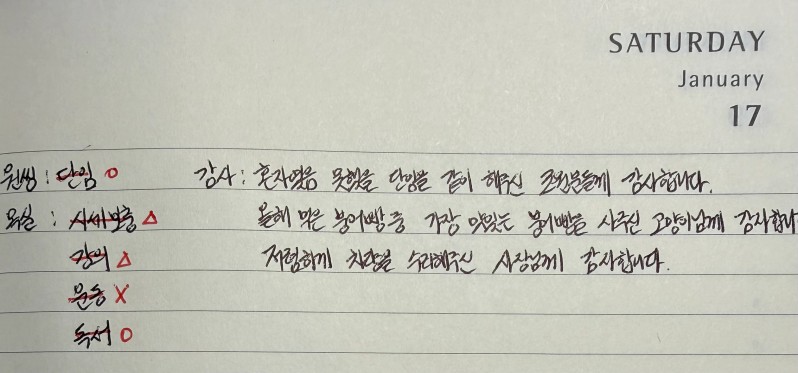 SATURDAY
January
17
원씽 : 단임 O 감사 : 혼자였음 못했을 단임을 같이 해주신 조원분들께 감사합니다.
올해 먹은 붕어빵 중 가장 맛있는 붕어빵을 사주신 고양이님께 감사합니다
강의 △ 저렴하게 차량을 수리해주신 사장님께 감사합니다.
운동 X
독서 O